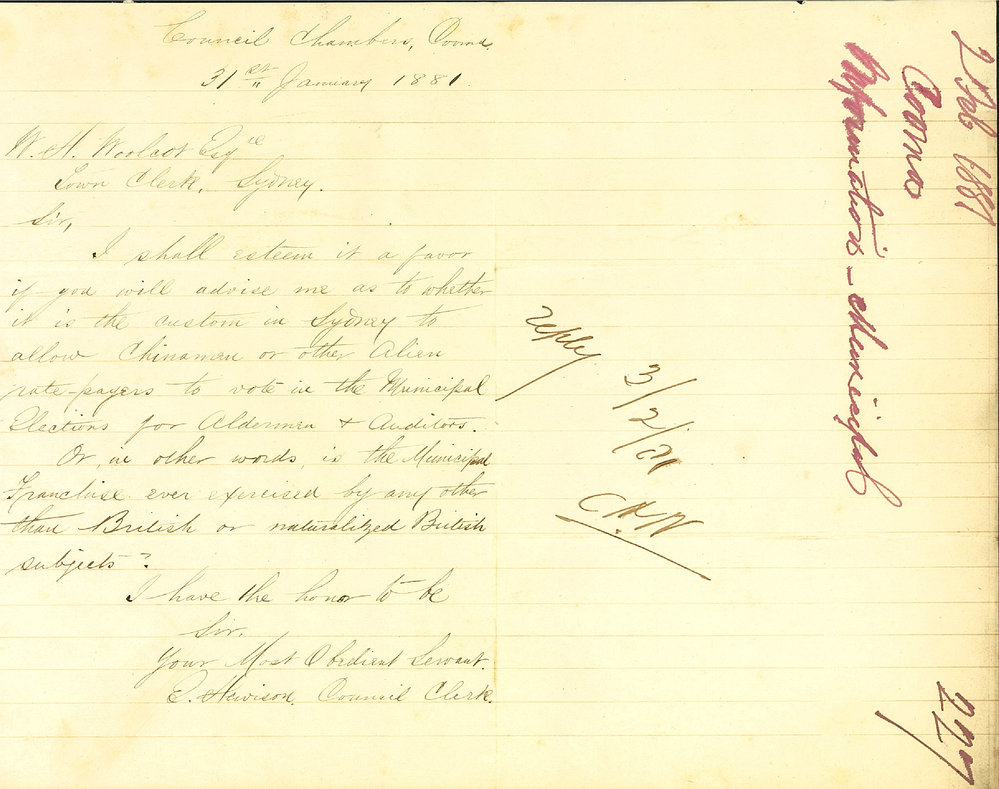 Council Chambers, Cooma
31st January 1881.
W. H. Woolcot Esqre
Town Clerk, Sydney.
Sir,
I shall esteem it a favor
if you will advise me as to whether
it is the custom in Sydney to
allow Chinamen or other Alien
rate-payers to vote in the Municipal
Elections for Aldermen & Auditors.
Or, in other words, is the Municipal
Franchise ever exercised by any other
than British or naturalized British
subjects?
I have the honor to be
Sir,
Your Most Obedient Servant.
E. Hewison. Council Clerk.
reply
3/2/81
CHW
2 Feb 1881
Cooma
Information - Municipal
227